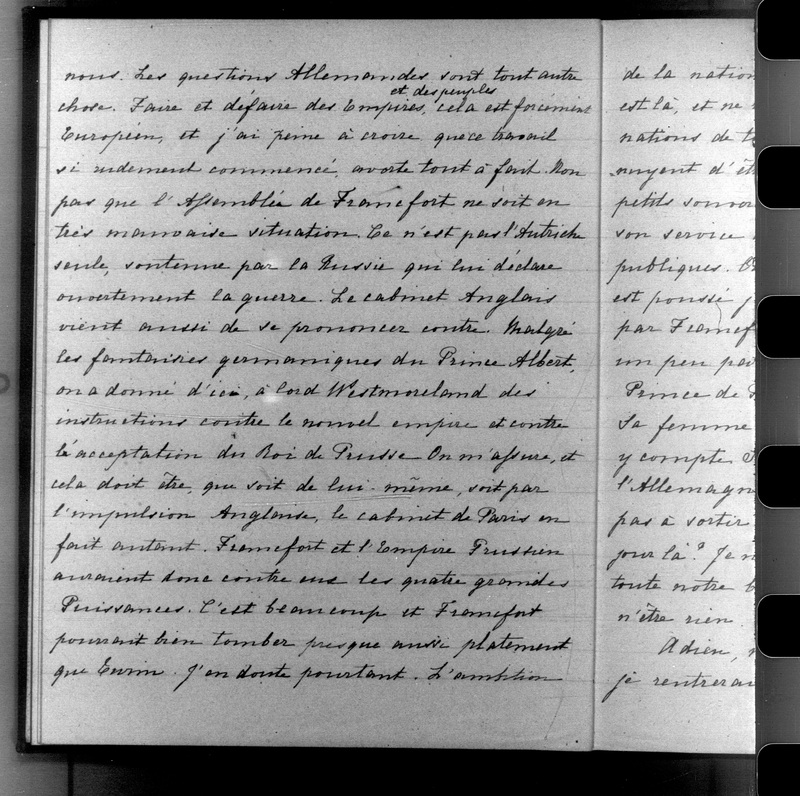 nous. Les questions Allemandes sont tout autre
et des peuples
chose. Faire et défaire des Empires, cela est forcément
Européen, et j'ai peine à croire que ce travail
si rudement commencé, avorte tout à fait. Non
pas que l'Assemblée de Francfort ne soit en
très mauvaise situation. Ce n'est pas l'Autriche
seule, soutenue par la Russie qui lui déclare
ouvertement la guerre. Le cabinet Anglais
vient aussi de se prononcer contre. Malgré
les fantaisies germaniques du Prince Albert,
on a donné d'ici, à lord Westmoreland des
instructions contre le nouvel empire et contre
l'acceptation du Roi de Prusse On m'assure, et
cela doit être, que soit de lui même, soit par
l'impulsion Anglaise, le cabinet de Paris en
fait autant. Francfort et l'Empire Prussien
auraient donc contre eux les quatre grandes
Puissances. C'est beaucoup et Francfort
pourrait bien tomber presque aussi platement
que Turin. J'en doute pourtant. L'ambition
de la nation
est là, et ne
nations de
nuyent d'êt
petits souver
son service
publiques.
est poussé j
par Francf
un peu pa
Prince de
Sa femme
y compte
l'Allemagn
pas à sortir
jour là? Je n
toute notre b
n'être rien
Adieu,
je rentrerai